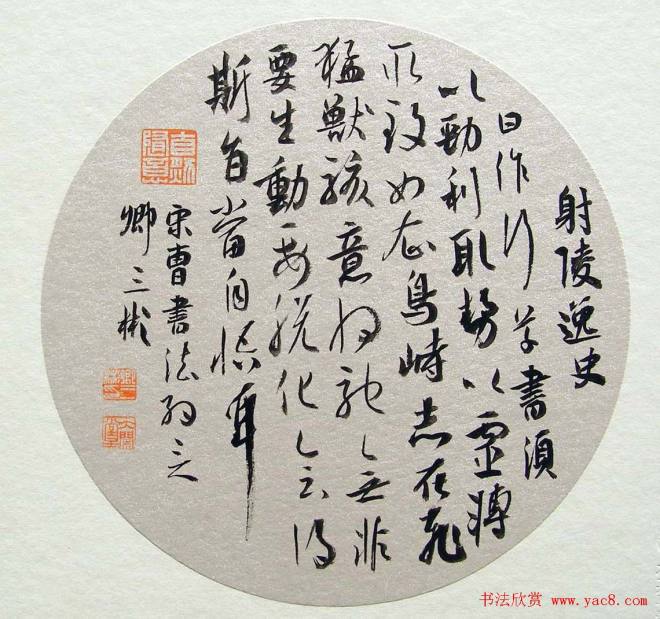 射陵逸史
曰作行草書須
以勁利取勢以靈轉
取致如企鳥峙志在飛
猛獸駭意將馳無非
要生動要脫化會得
斯旨當自悟耳
宋曹書法約言
卿三彬
书法欣赏 www.yac8.com